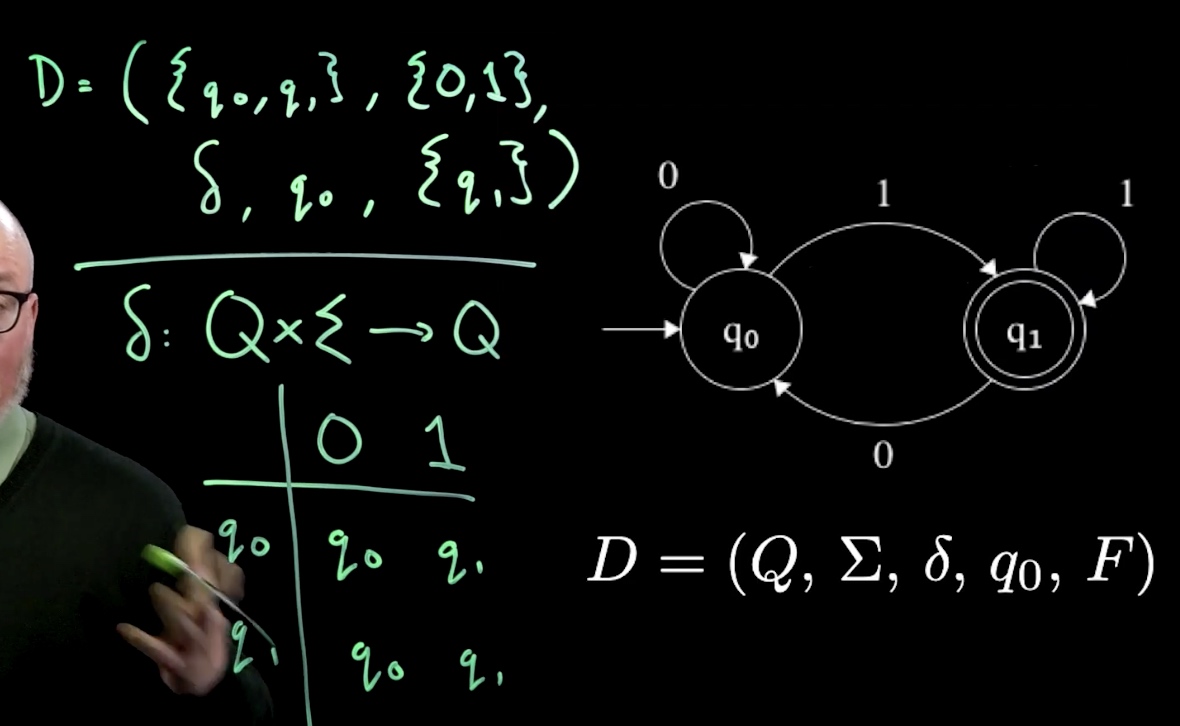 D = ({q₀, q₁}, {0, 1},
δ, q₀, {q₁})
δ: Q × Σ → Q
0 1
q₀ q₀ q₁
q₁ q₀ q₁
0
1
1
q₀
q₁
0
D = (Q, Σ, δ, q₀, F)